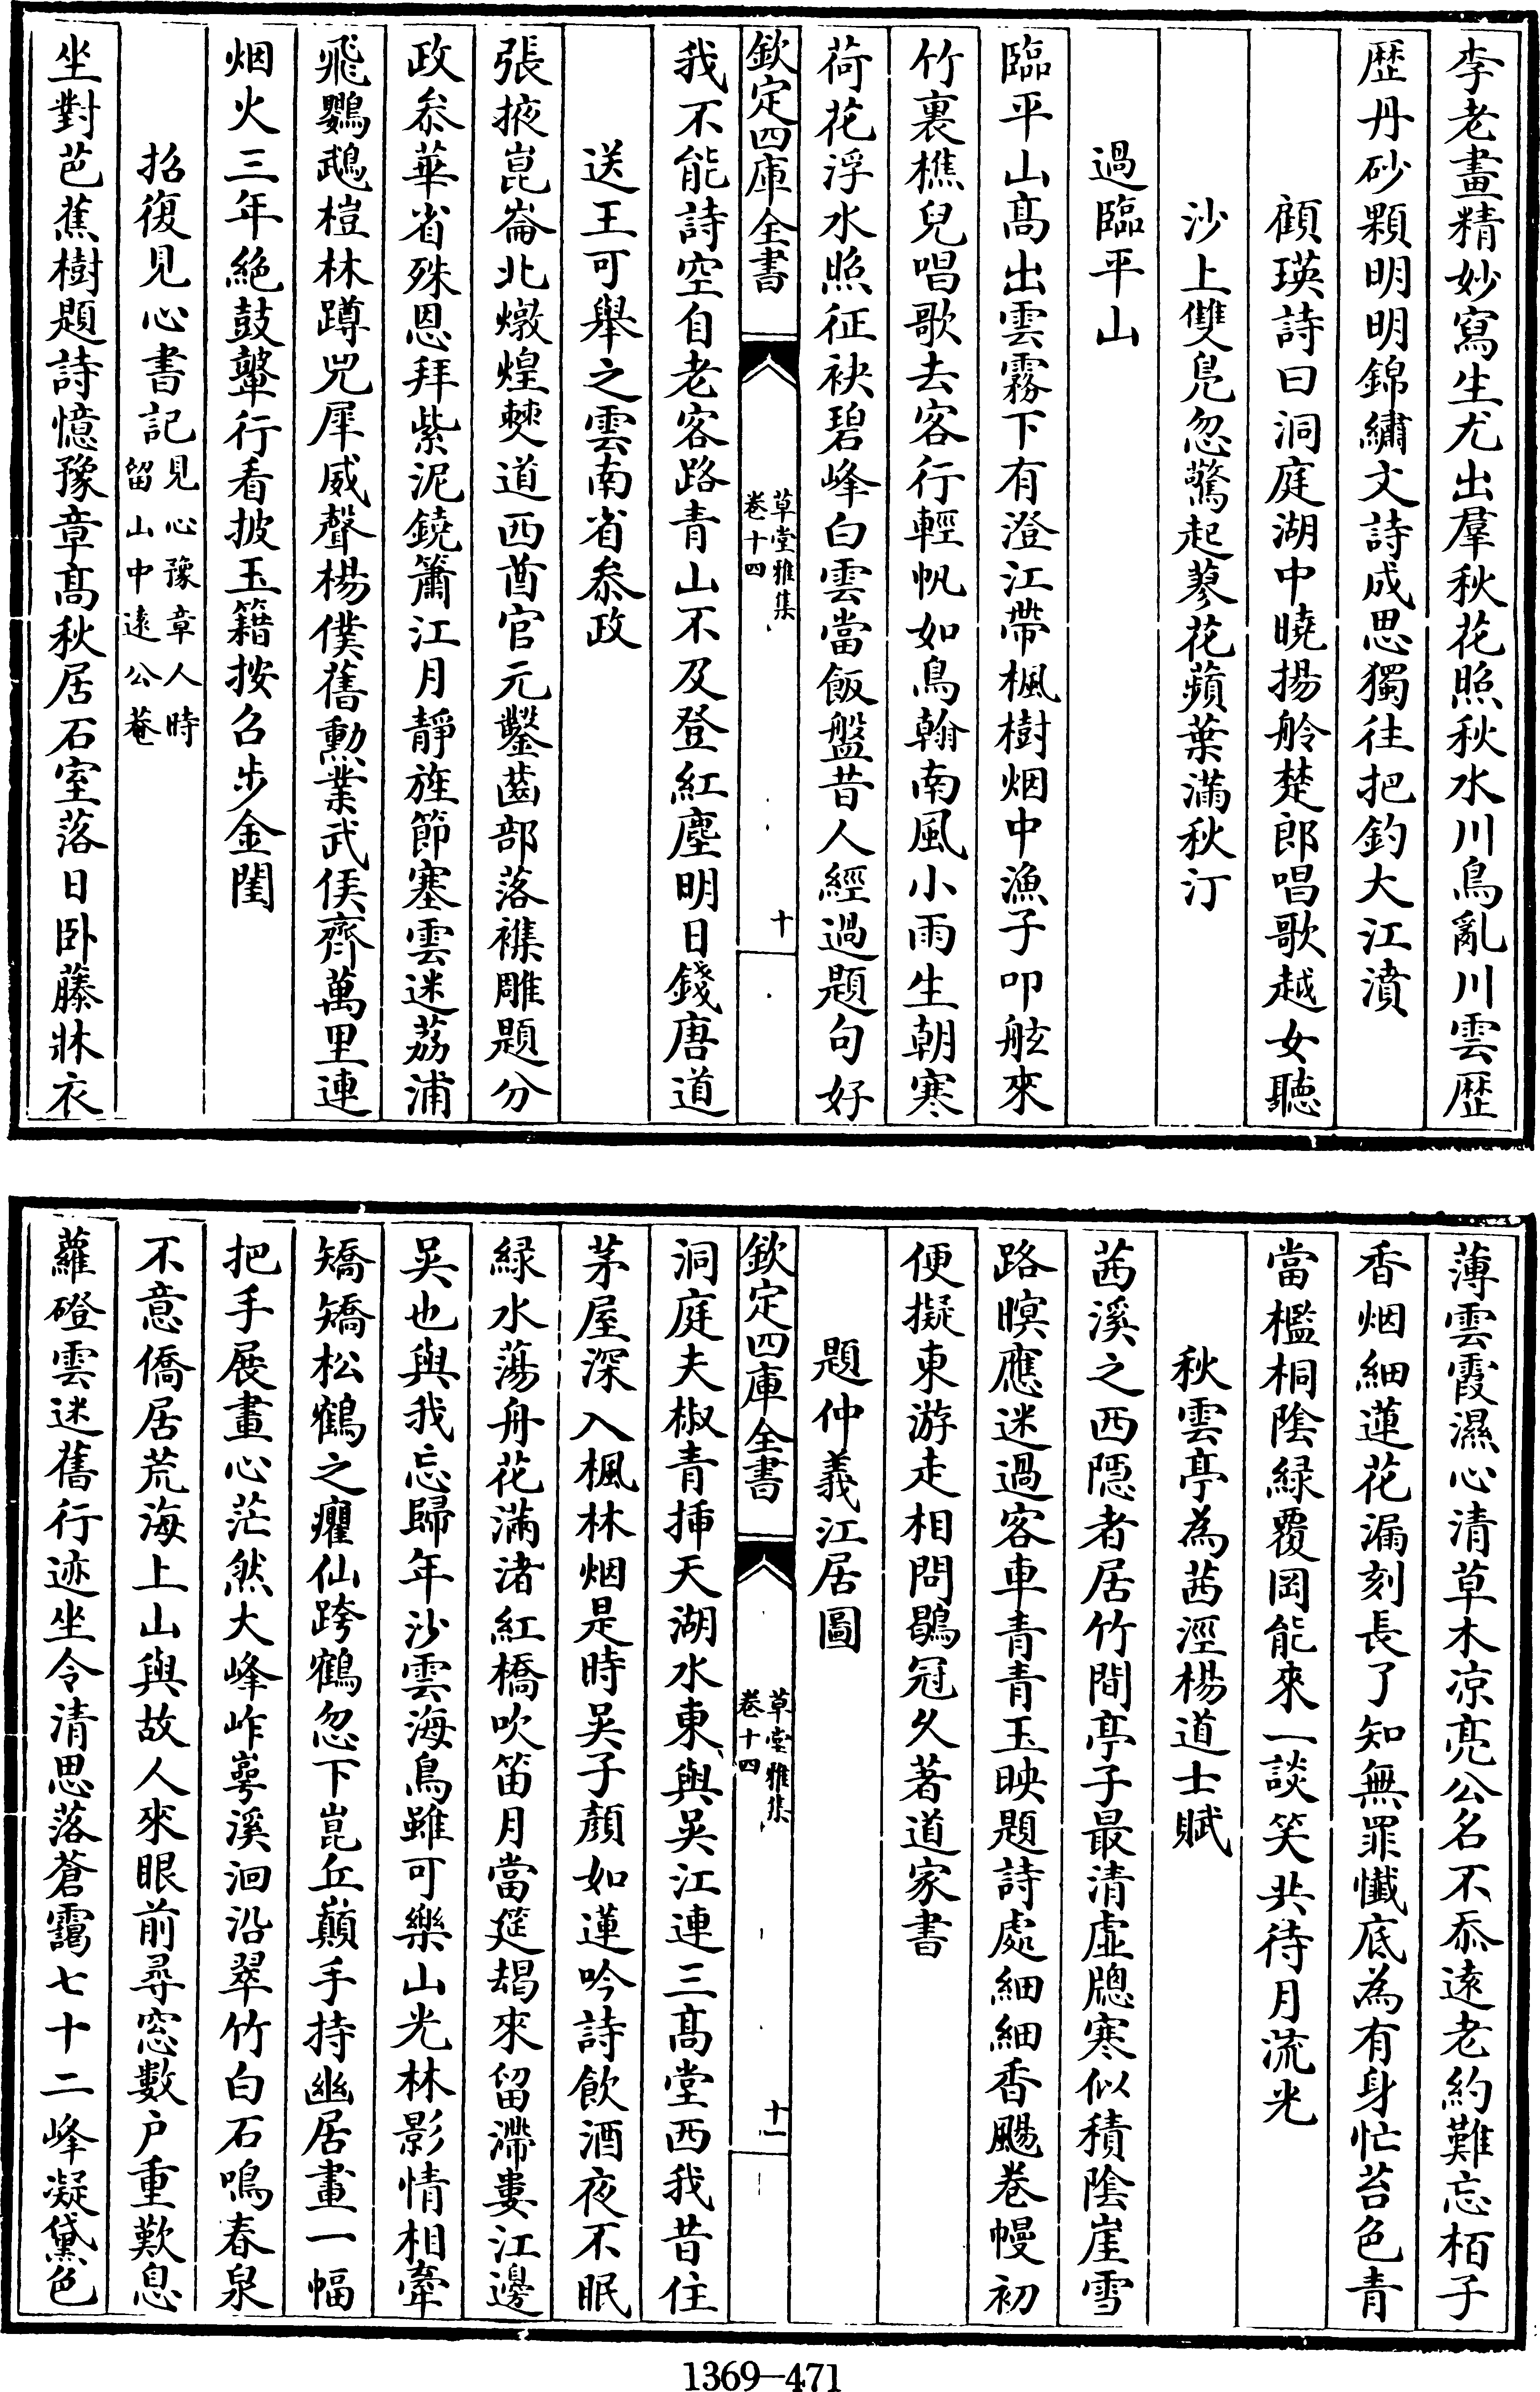 李老畫精妙寫生尤出羣秋花照秋水川鳥亂川雲歴
歴丹砂顆明明錦繡文詩成思獨往把釣大江濆
顧瑛詩曰洞庭湖中曉揚舲楚郎唱歌越女聽
沙上雙鳬忽驚起蓼花蘋葉滿秋汀
過臨平山
臨平山髙出雲霧下有澄江帶楓樹烟中漁子叩舷來
竹裏樵兒唱歌去客行輕帆如鳥翰南風小雨生朝寒
荷花浮水照征袂碧峰白雲當飯盤昔人經過題句好
欽定四庫全書
草堂雅集
卷十四
十
我不能詩空自老客路青山不及登紅塵明日錢唐道
送王可舉之雲南省叅政
張掖崑崙北燉煌僰道西酋官元鑿齒部落襍雕題分
政叅華省殊恩拜紫泥鐃簫江月靜旌節塞雲迷荔浦
飛鸚鵡榿林蹲兕犀威聲楊僕舊勲業武侯齊萬里連
烟火三年絶鼓鼙行看披玉籍按召步金閨
招復見心書記
見心豫章人時
留山中逺公菴
坐對芭蕉樹題詩憶豫章髙秋居石室落日卧藤牀衣
薄雲霞濕心清草木凉亮公名不忝逺老約難忘栢子
香烟細蓮花漏刻長了知無罪懺底為有身忙苔色青
當檻桐隂緑覆岡能來一談笑共待月流光
秋雲亭為茜涇楊道士賦
茜溪之西隠者居竹間亭子最清虚牕寒似積隂崖雪
路暝應迷過客車青青玉映題詩處細細香颺卷幔初
便擬東游走相問鶡冠久著道家書
題仲義江居圖
欽定四庫全書
草堂雅集
卷十四
十一
洞庭夫椒青挿天湖水東與吳江連三髙堂西我昔住
茅屋深入楓林烟是時吳子顔如蓮吟詩飲酒夜不眠
緑水蕩舟花滿渚紅橋吹笛月當筵朅來留滯婁江邊
吳也與我忘歸年沙雲海鳥雖可樂山光林影情相牽
矯矯松鶴之癯仙跨鶴忽下崑丘巔手持幽居畫一幅
把手展畫心茫然大峰岞崿溪洄沿翠竹白石鳴春泉
不意僑居荒海上山與故人來眼前尋窓數户重歎息
蘿磴雲迷舊行迹坐令清思落蒼靄七十二峰凝黛色
1369—471